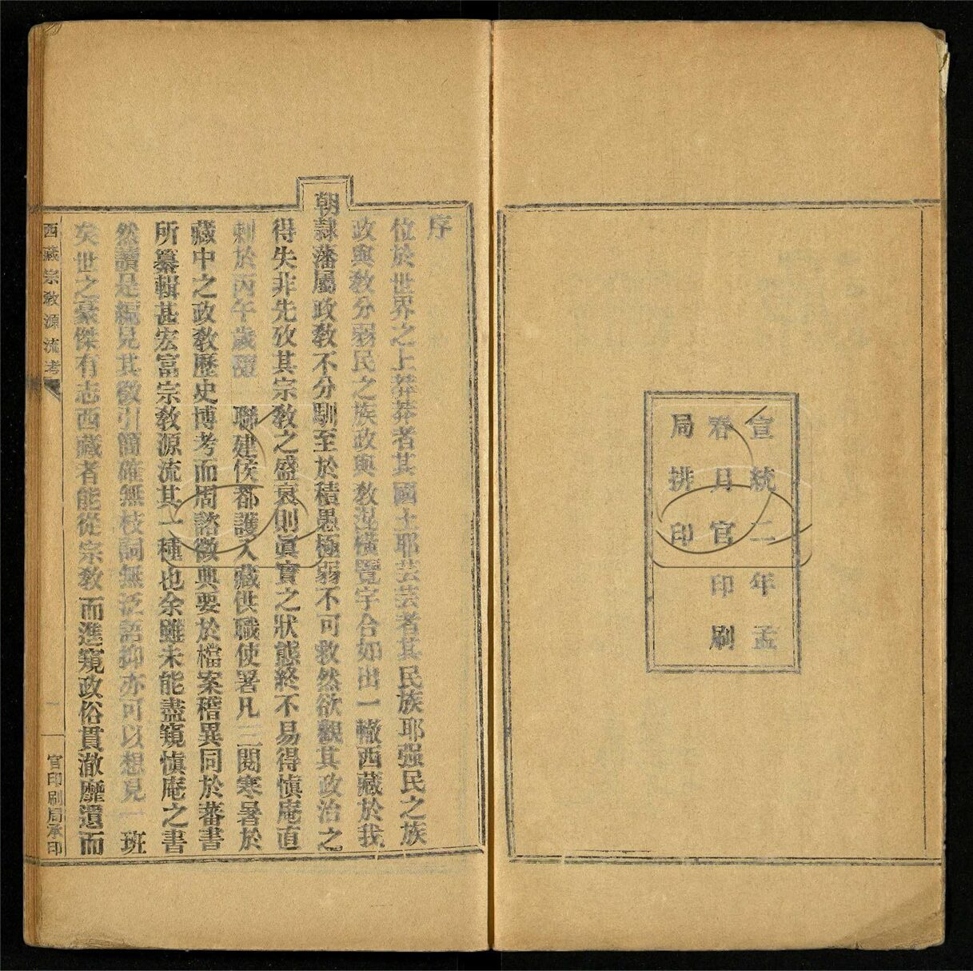 宣統二年孟
春月官印刷
局排印
序
位於世界之上莽莽者其國土耶芸芸者其民族耶强民之族
政與敎分弱民之族政與敎混橫覽宇合如出一轍西藏於我
朝隸藩屬政敎不分馴至於積愚極弱不可救然欲觀其政治之
得失非先攷其宗敎之盛衰則眞實之狀態終不易得愼庵直
刺於丙午歲隨 聯建侯都護入藏供職使署凡三閱寒暑於
藏中之政敎歷史博考而周諮徵典要於檔案稽異同於蕃書
所纂輯甚宏富宗敎源流其一種也余雖未能盡窺愼庵之書
然讀是編見其徵引簡確無枝詞無泛語抑亦可以想見一班
矣世之豪傑有志西藏者能從宗敎而進窺政俗貫澈靡遺而
西藏宗敎源流考
一
官印刷局承印